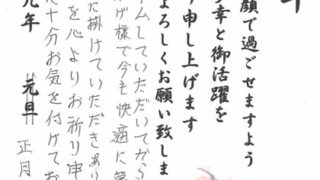 年
顔で過ごせますよう
幸と御活躍を
り申し上げます
よろしくお願い致しま
ームしていただいてから
げ様で今も快適に
に掛けていただきあり
を心よりお祈り申
十分お気を付けてお
元年 元旦
正月